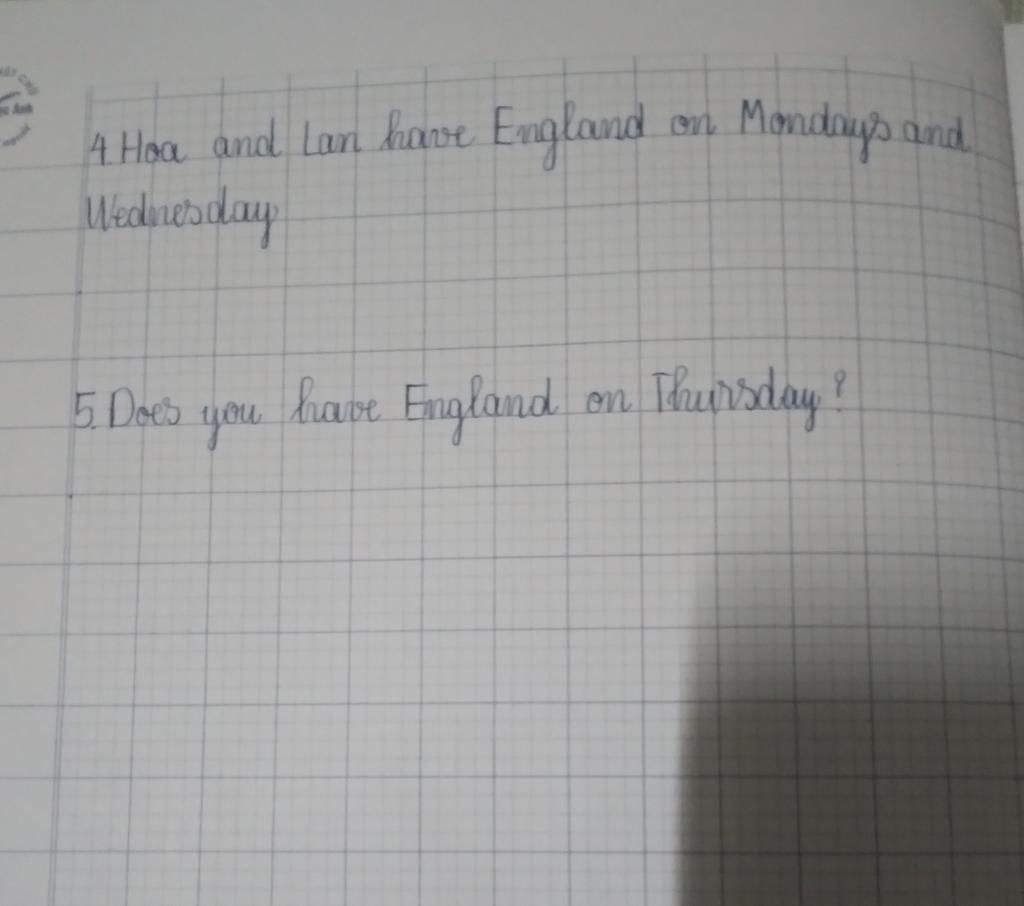 4. Hoa and Lan have England on Mondays and
Wednesday
5. Does you have England on Thursday?